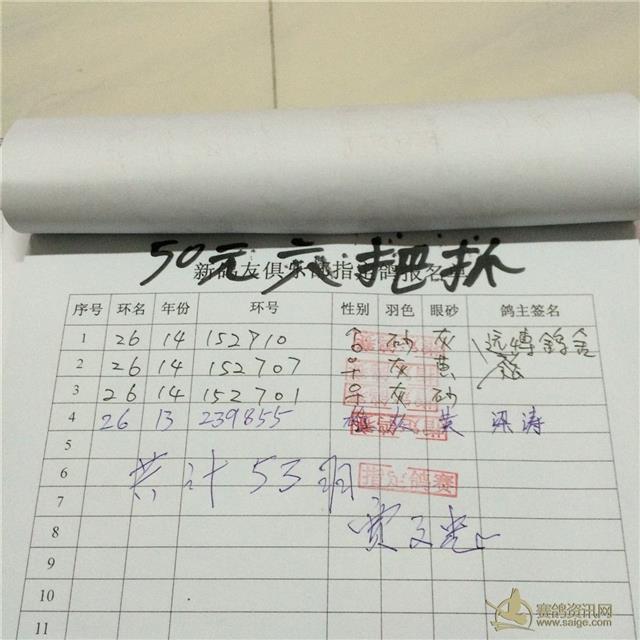 50元六把抓
新鸽友俱乐部指定鸽报名单
序号 环名 年份 环号 性别 羽色 眼砂 鸽主签名
1 26 14 152710 ♂ 砂 灰 远博鸽舍
2 26 14 152707 ♀ 灰 黄
3 26 14 152701 ♀ 灰 砂
4 26 13 239855 雄 灰 黄 梁涛
5
共计53羽
6 指定鸽赛
7
8
9
10
11
赛鸽资讯网
www.saige.com